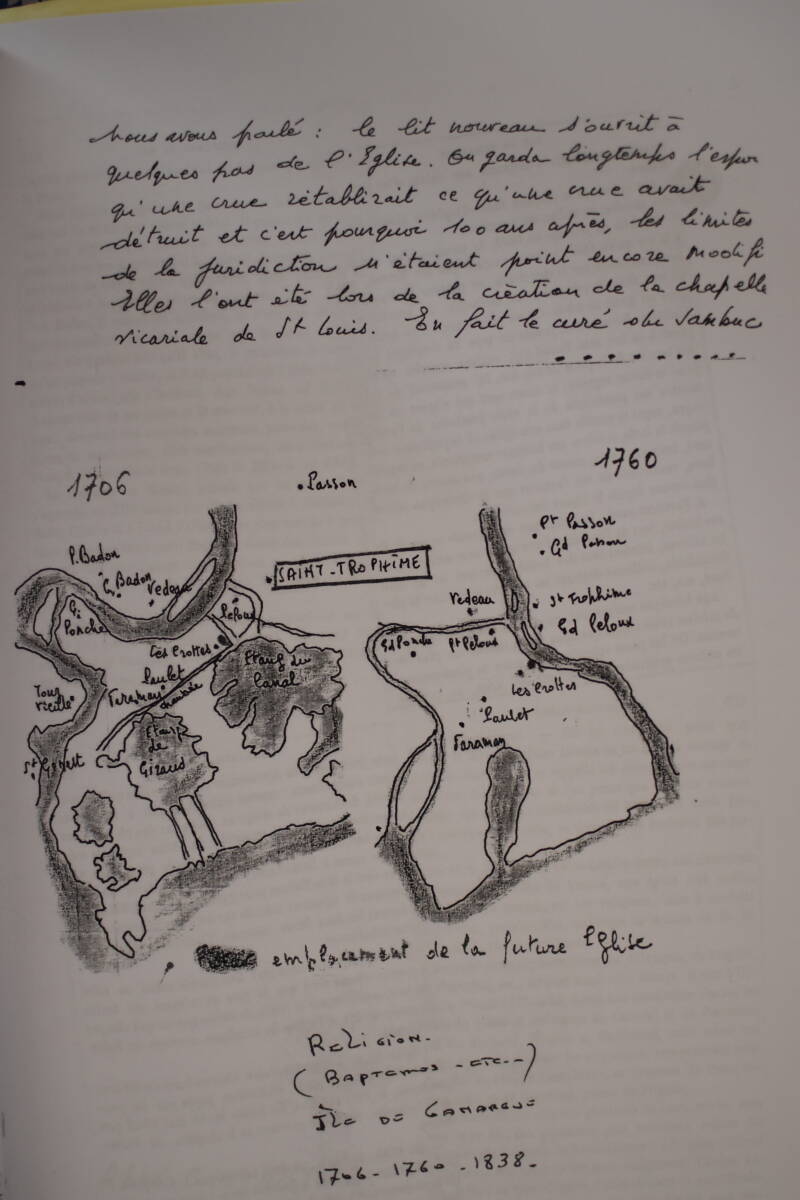 nous avons parlé : le lit nouveau s'ouvrit à
quelques pas de l'Eglise. On garda longtemps l'espoir
qu'une crue rétablirait ce qu'une crue avait
détruit et c'est pourquoi 100 ans après, les limites
de la juridiction n'étaient point encore modifi
Elles l'ont été lors de la création de la chapelle
vicariale de St Louis. En fait le curé du Sambuc
1706
1760
Passon
SAINT-TROPHÎME
P. Badon
G. Badon
Vedeau
Gd Ponche
Peloux
Les Crottes
Paulet
Faraman
Etang du
Canal
Tour
Vieille
St Genest
Etang
de
Giraud
Pt Passon
Gd Passon
Vedeau
St Trophime
Gd Peloux
Gd Ponche
Pt Peloux
Les Crottes
Paulet
Faraman
emplacement de la future Eglise
RELIGION.
(BAPTEMES - ETC..)
ÎLE DE CAMARGUE
1706 - 1760 - 1838 -